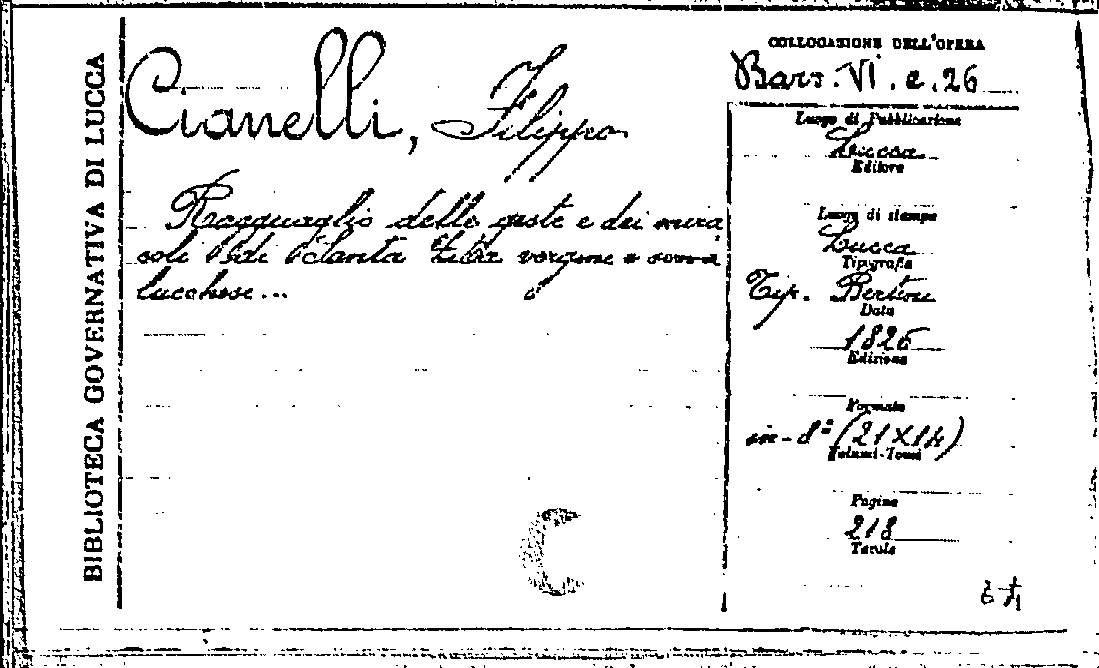 BIBLIOTECA GOVERNATIVA DI LUCCA
Cianelli, Filippo
Ragguaglio delle geste e dei mira
coli di Santa Zita vergine e
lucchese...
C
COLLOCAZIONE DELL'OPERA
Bars. VI. e. 26
Luogo di Pubblicazione
Lucca
Editore
Luogo di stampa
Lucca
Tipografia
Tip. Bertini
Data
1826
Edizione
Formato
in-8º (21X14)
Volumi-Tomi
Pagine
218
Tavole